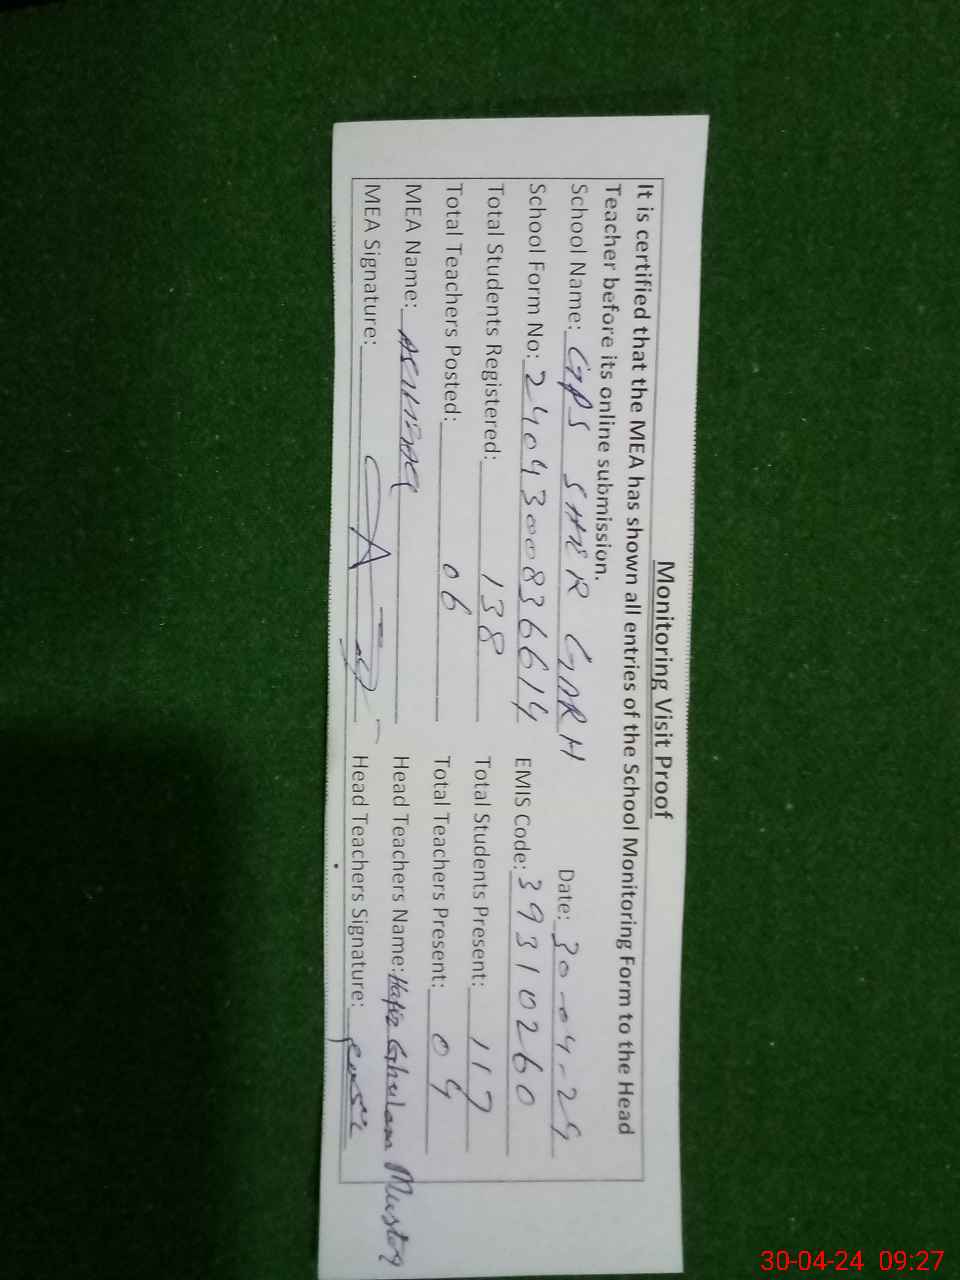 Monitoring Visit Proof
It is certified that the MEA has shown all entries of the School Monitoring Form to the Head
Teacher before its online submission.
School Name: GPS SHER GARH Date: 30-04-24
School Form No: 2404300836614 EMIS Code: 39310260
Total Students Registered: 138 Total Students Present: 117
Total Teachers Posted: 06 Total Teachers Present: 04
MEA Name: Head Teachers Name: Hafiz Ghulam
MEA Signature: Head Teachers Signature:
30-04-24 09:27